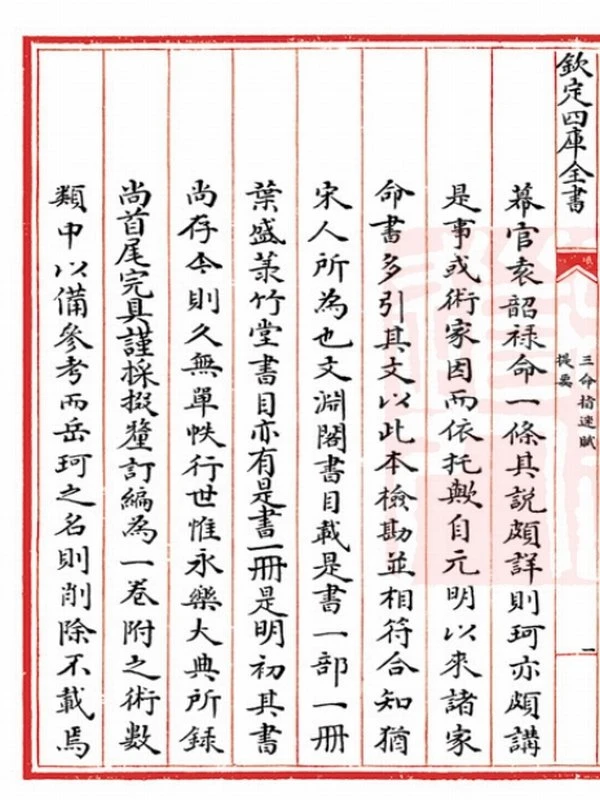 欽定四庫全書
三命指迷賦
提要
一
幕官袁韶禄命一條其説頗詳則珂亦頗講
是事或術家因而依托歟自元明以來諸家
命書多引其文以此本檢勘並相符合知猶
宋人所為也文淵閣書目載是書一部一冊
葉盛菉竹堂書目亦有是書一冊是明初其書
尚存今則久無單帙行世惟永樂大典所録
尚首尾完具謹採掇釐訂編為一卷附之術數
類中以備參考而岳珂之名則削除不載焉